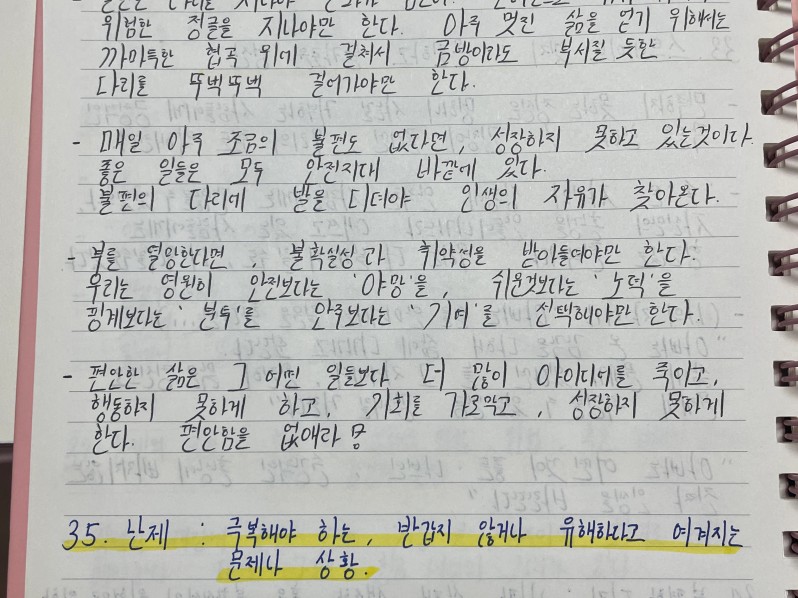 위험한 정글을 지나야만 한다. 아주 멋진 삶을 얻기 위해서는
까마득한 협곡 위에 걸쳐서 금방이라도 부서질 듯한
다리를 뚜벅뚜벅 걸어가야만 한다.
- 매일 아주 조금의 불편도 없다면, 성장하지 못하고 있는것이다.
좋은 일들은 모두 안전지대 바깥에 있다.
불편의 다리에 발을 디뎌야 인생의 자유가 찾아온다.
- 부를 열망한다면 불확실성과 취약성을 받아들여야만 한다.
우리는 영원히 안전보다는 '야망'을, 쉬운것보다는 '노력'을
핑계보다는 '분투'를 안주보다는 '기여'를 선택해야만 한다.
- 편안한 삶은 그 어떤 일들보다 더 많이 아이디어를 죽이고,
행동하지 못하게 하고, 기회를 가로막고, 성장하지 못하게
한다. 편안함을 없애라
35. 난제 : 극복해야 하는, 반갑지 않거나 유해하다고 여겨지는
문제나 상황.